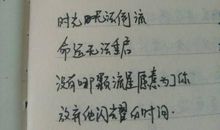 时光无法倒流
命运无法重启
没有哪颗流星愿意为了你
放弃他闪耀的时间.